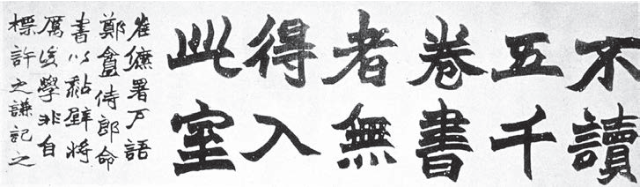 不讀
五千
卷書
者無
得入
此室
崔儦署戶語
鄭盦侍郎命
書以黏壁將
厲後學非自
標許之謙記之